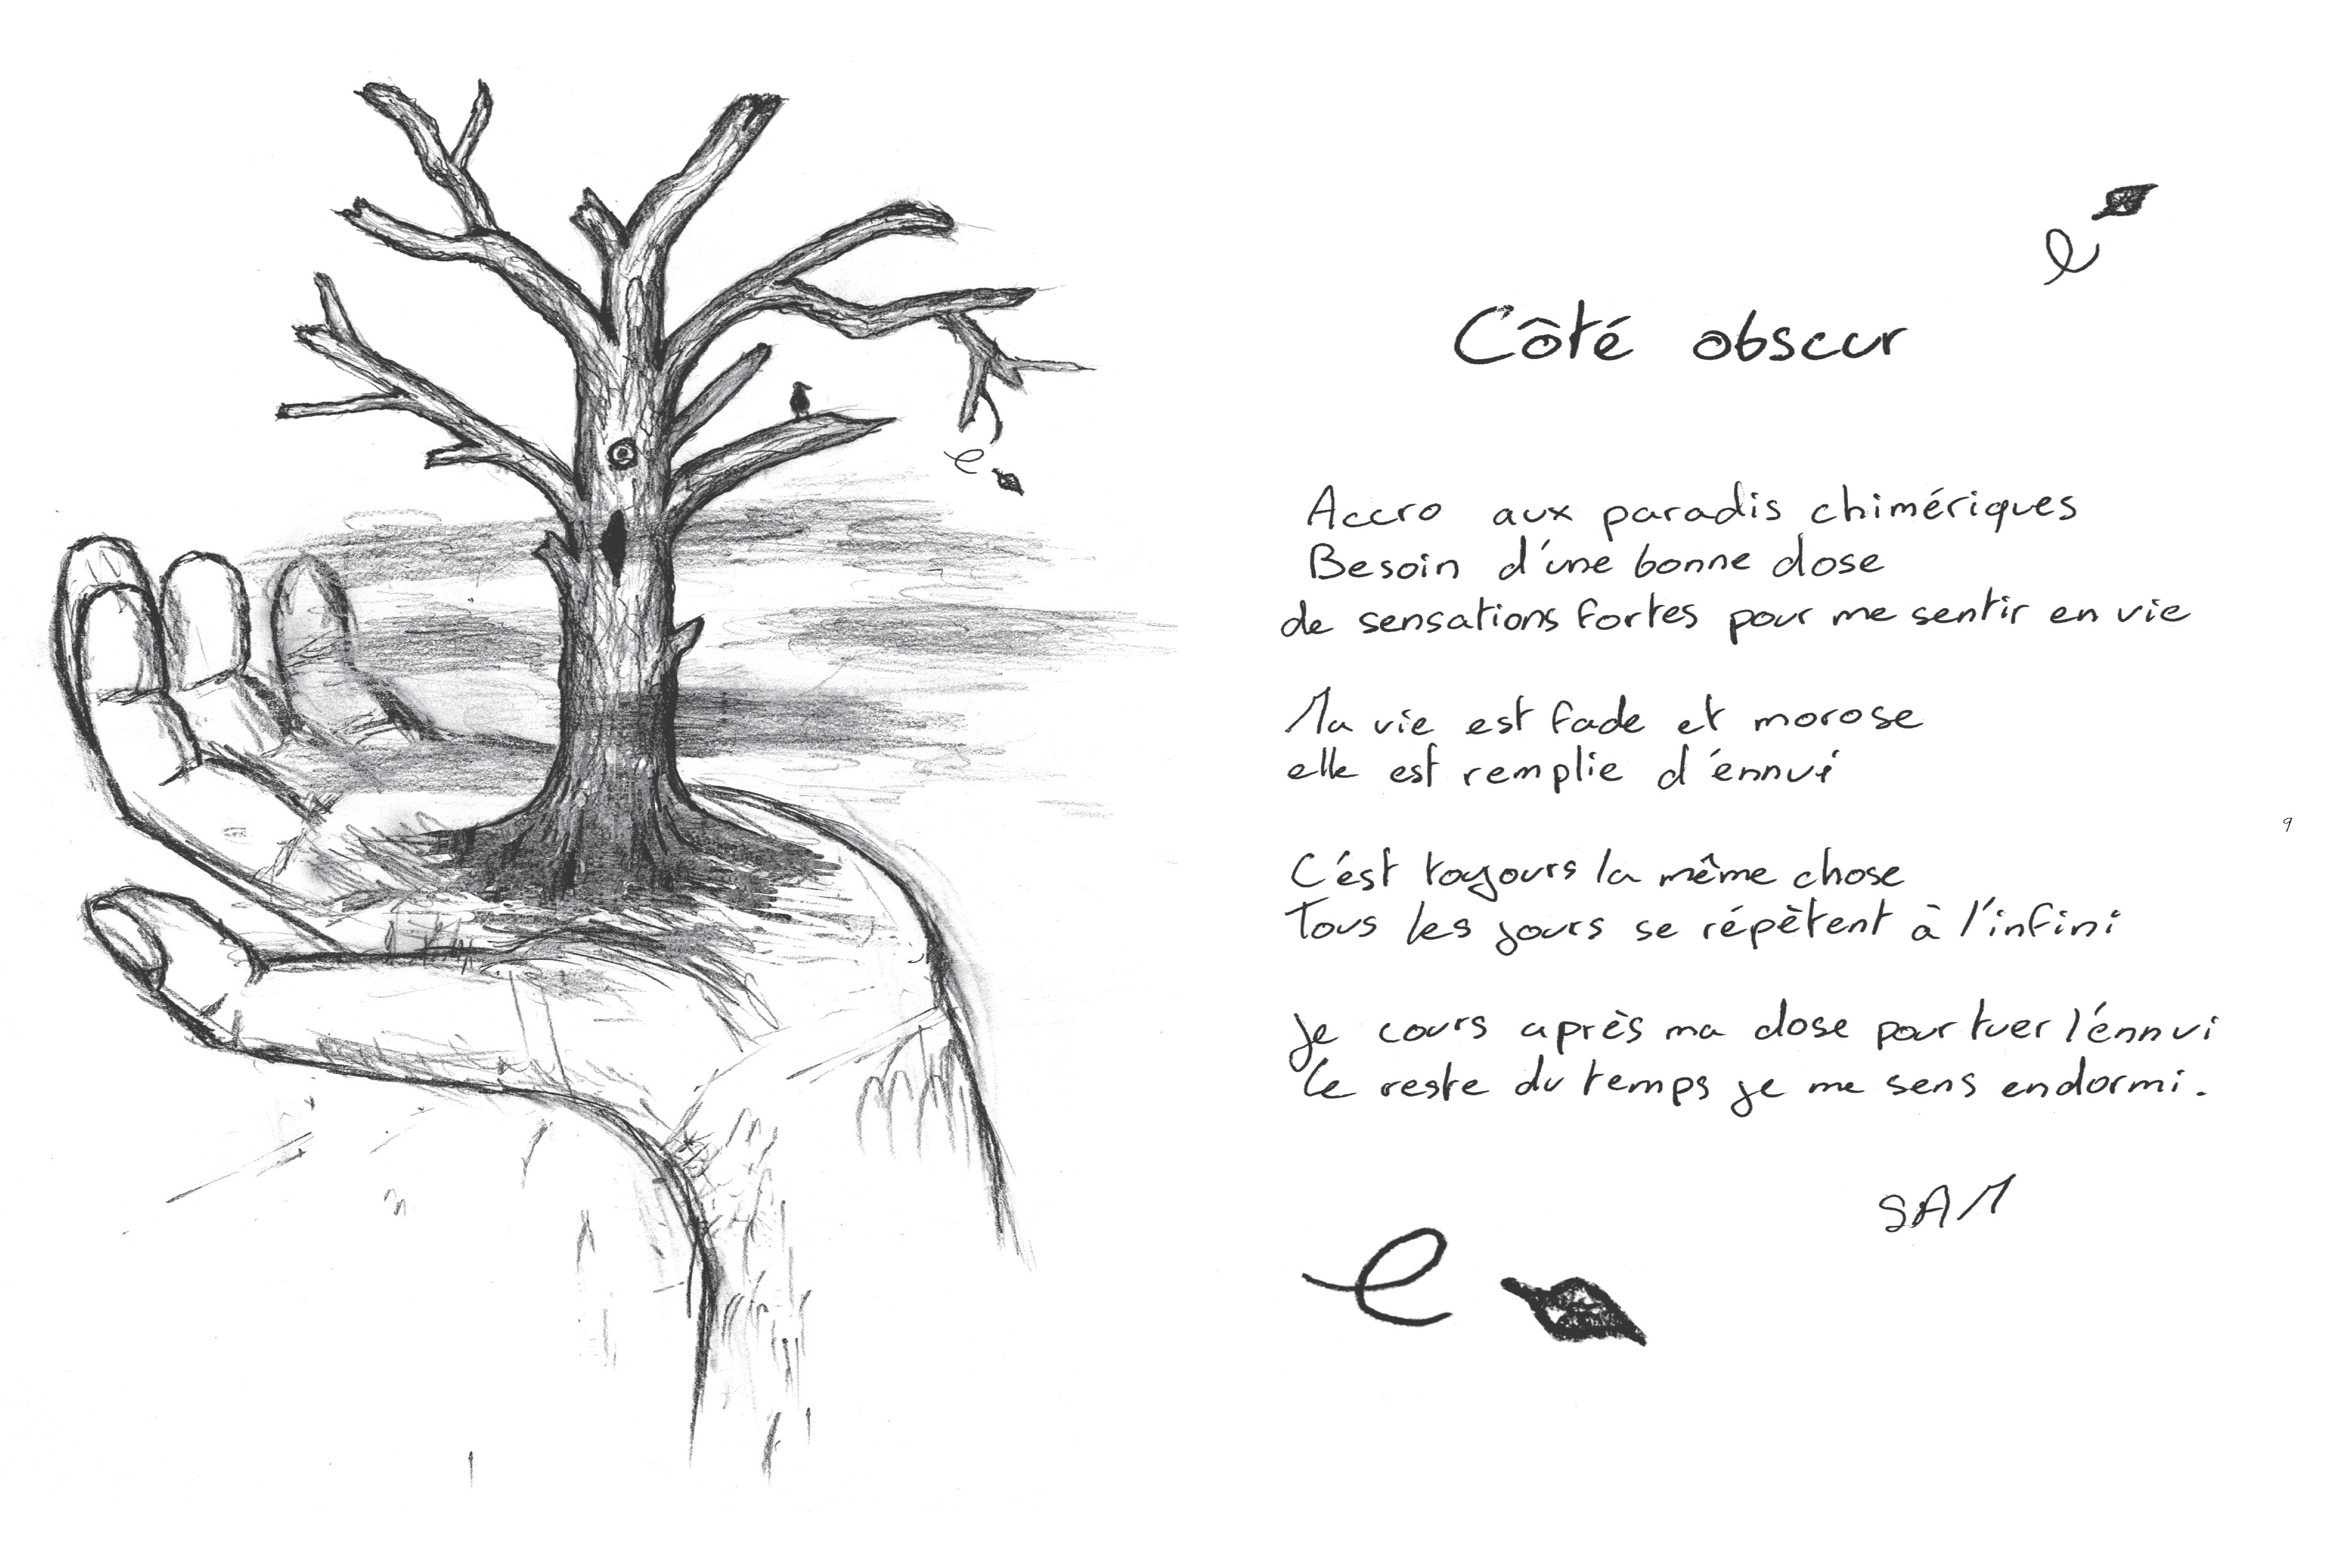 Côté obscur
Accro aux paradis chimériques
Besoin d'une bonne dose
de sensations fortes pour me sentir en vie
Ma vie est fade et morose
elle est remplie d'ennui
C'est toujours la même chose
Tous les jours se répètent à l'infini
Je cours après ma dose pour tuer l'ennui
Le reste du temps je me sens endormi.
SAM
9